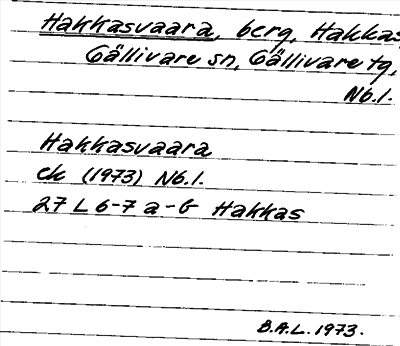 Hakkasvaara, berg, Hakkas
Gällivare sn, Gällivare tg,
Nb.l.
Hakkasvaara
ek (1973) Nb.l.
27 L 6-7 a-b Hakkas
B.A.L. 1973.